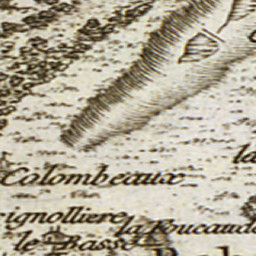 la
Colombeaux
ignolliere
la Foucaud
le Basse